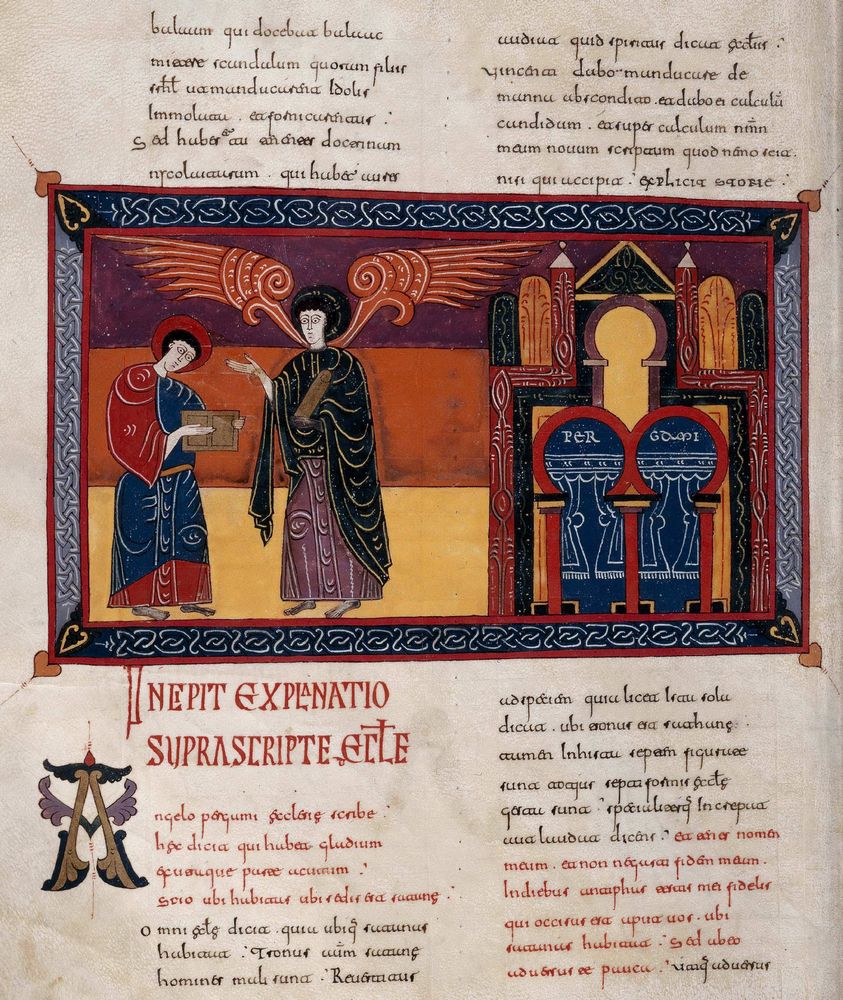 balaam qui docebat balaac
mittere scandalum quoram filiis
srhl ut manducarent Idolis
Immolata . et fornicarentur :
Sed habes et tu tenentes doctrinam
nicolaitarum . qui habet aures
audiat quid spiritus dicat ęctīs :
Vincenti dabo manducare de
manna abscondito . et dabo ei calculū
candidum . et super calculum nm̄n
meum nouum scriptum quod nēmo scit .
nisi qui accipit : explicit storie :
PER GAMI
INCIPIT EXPLANATIO
SUPRASCRIPTE ECLE
Angelo pergami ęcclesię scribe :
hęc dicit qui habet gladium
ex utraque parte acutum :
Scio ubi habitas ubi sedis est satanę :
Omni ęctę dicit . quia ubiq satanas
habitat : Tronus enim satanę
homines mali sunt : Reuertatus
ad speciem quia licet Ista solū
dicat . ubi tronus est satanę :
tamen In hista septem figurate
sunt atque septiformis ęctę
gesta sunt : specialiterq Increpat
ista laudat dicens : et tenes nomen
meum . et non negasti fidem meam .
In diebus antiphas testis mei fidelis
qui occisus est aput uos . ubi
satanas habitat : Sed abeo
aduersus te pauca : utiq aduersus